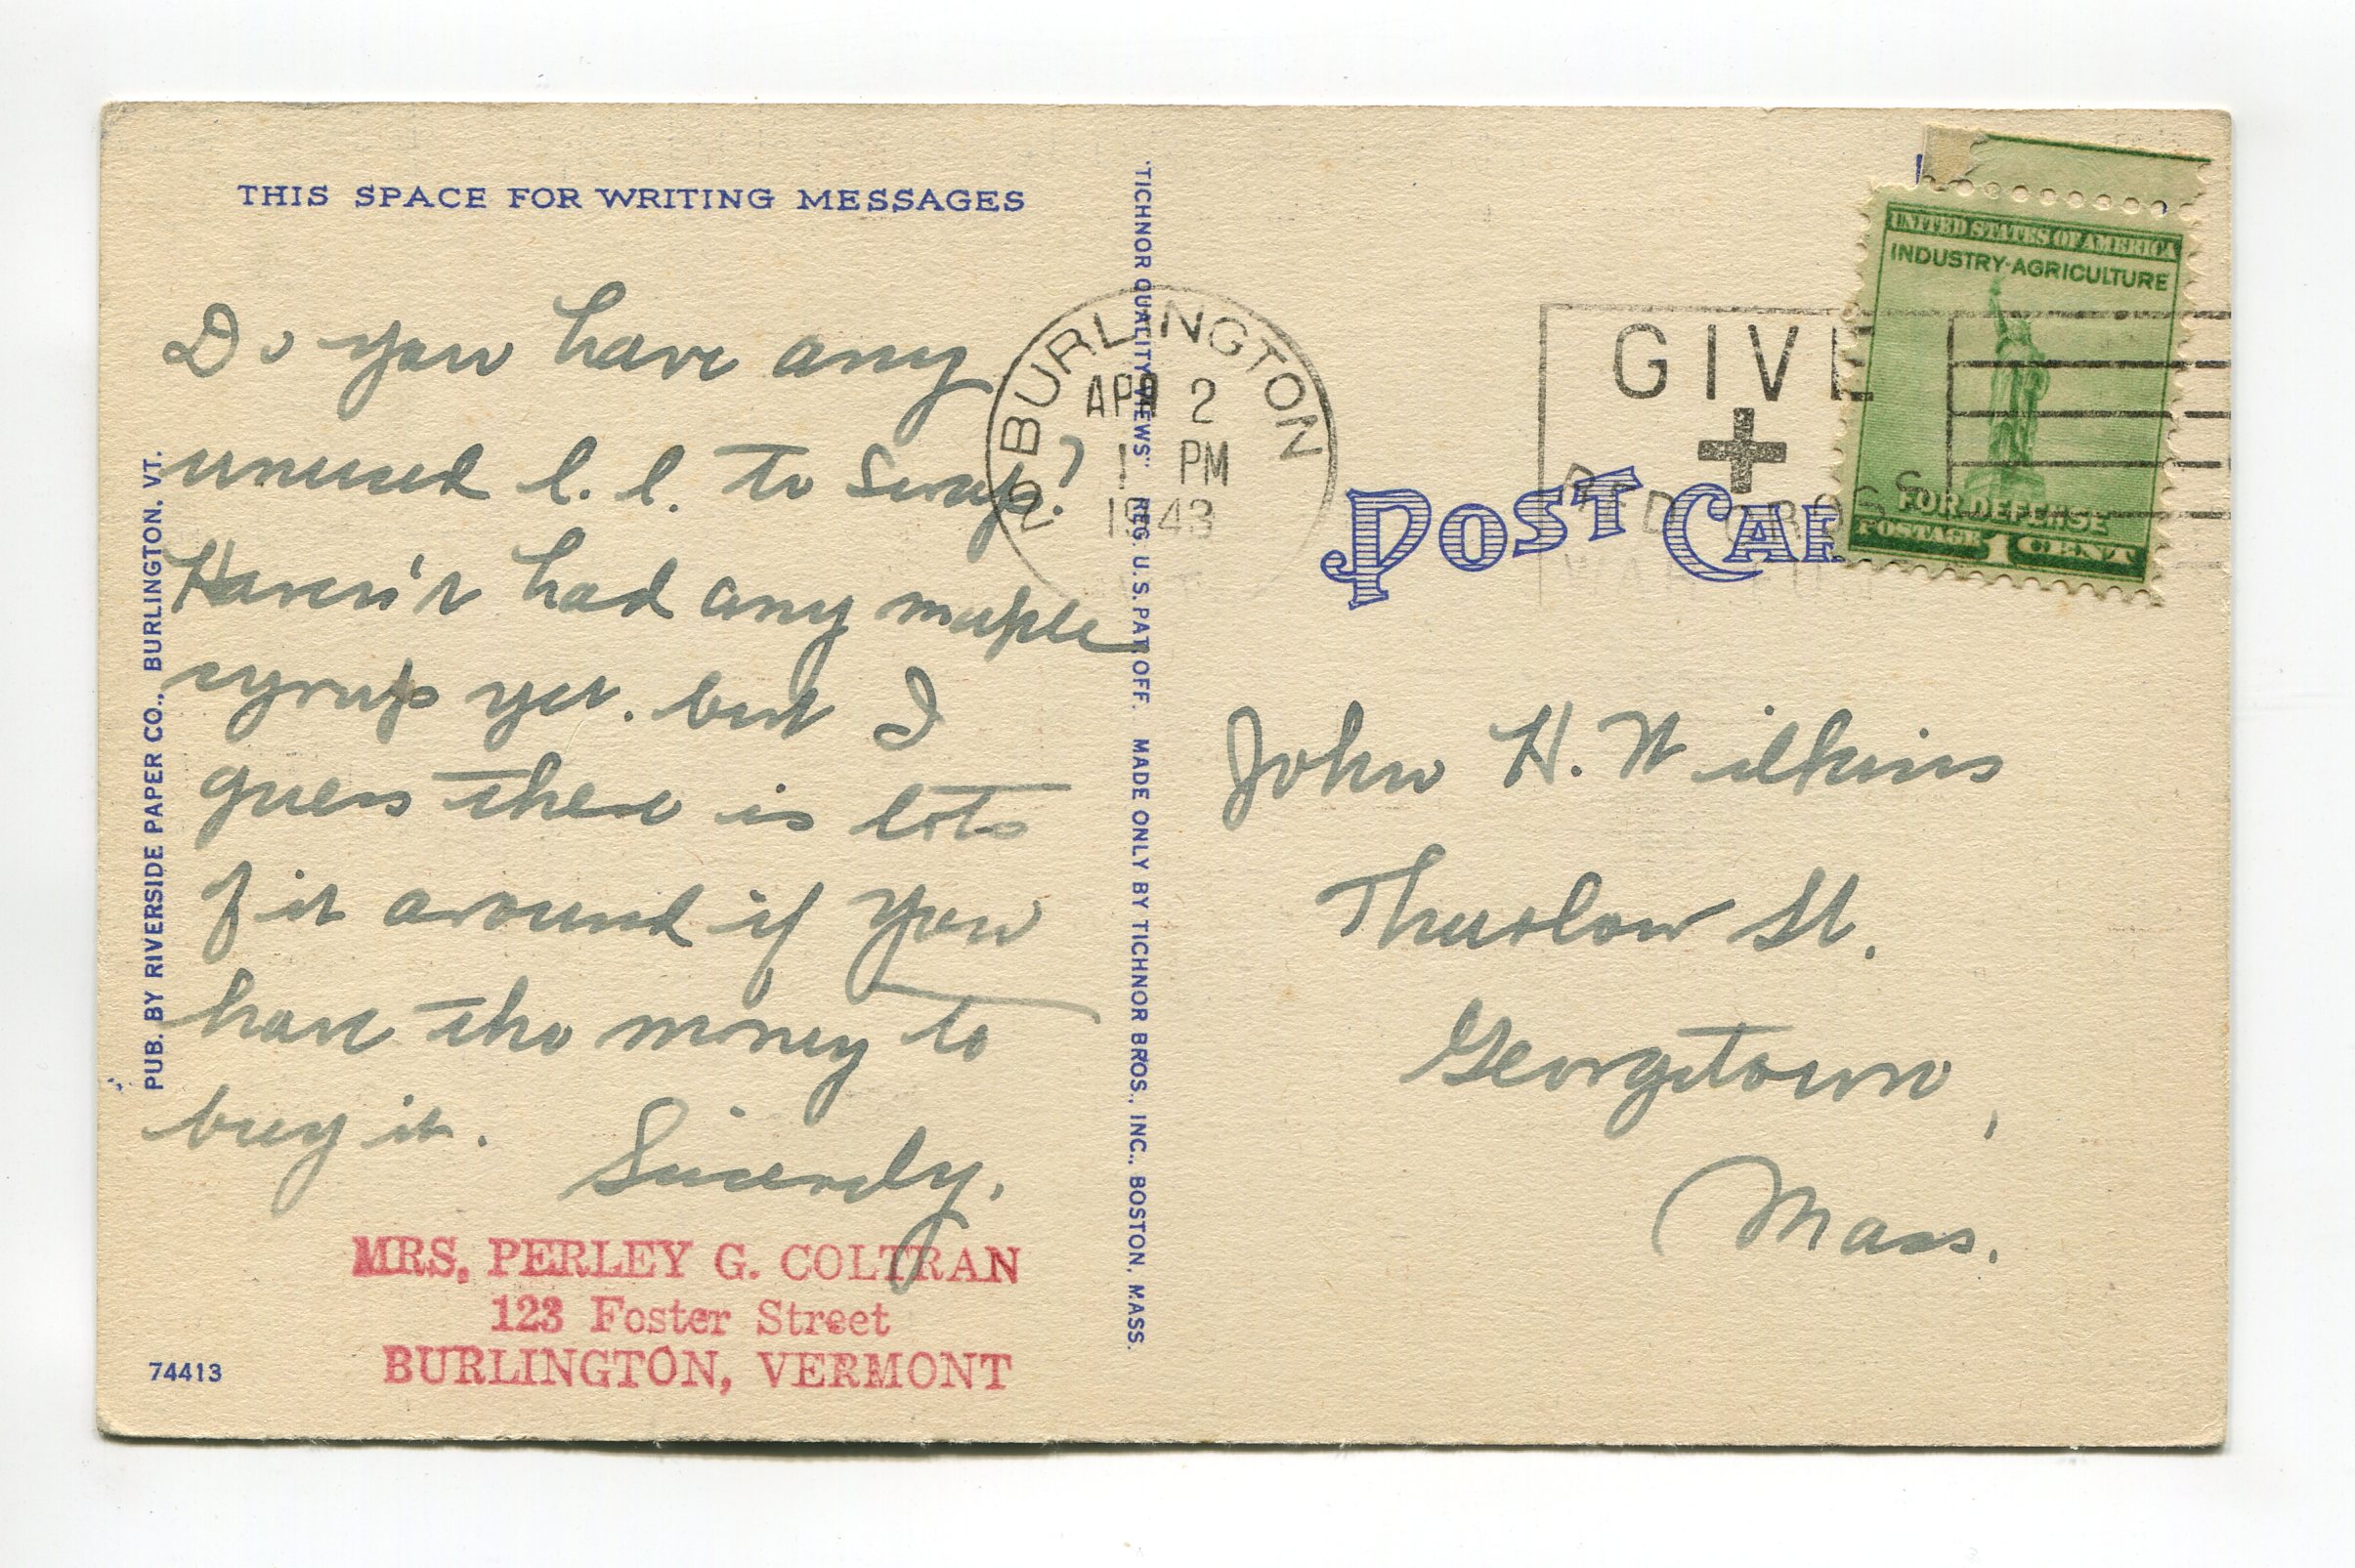 THIS SPACE FOR WRITING MESSAGES
Do you have any
unused l. l. to Swap?
Haven't had any maple
syrup yet. but I
guess there is lots
of it around if you
have the money to
buy it.
Sincerely,
MRS. PERLEY G. COLTRAN
123 Foster Street
BURLINGTON, VERMONT
74413
PUB. BY RIVERSIDE PAPER CO., BURLINGTON, VT.
"TICHNOR QUALITY VIEWS" REG. U.S. PAT. OFF. MADE ONLY BY TICHNOR BROS., INC., BOSTON, MASS.
BURLINGTON
APR 2
1 PM
1943
GIVE
RED CROSS
POST CAR
UNITED STATES OF AMERICA
INDUSTRY·AGRICULTURE
FOR DEFENSE
POSTAGE 1 CENT
John H. Wilkins
Thurlow St.
Georgetown,
Mass.